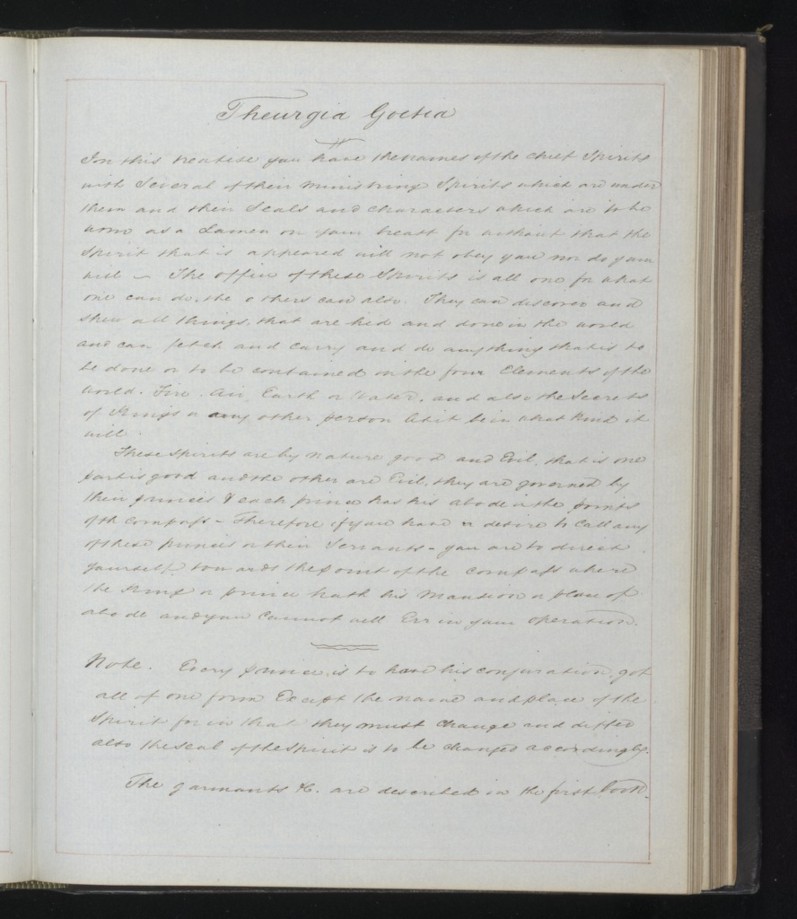 Theurgia Goetia
In this treatise you have the names of the chief Spirits
with Several of their ministring Spirits which are under
them and their Seals and characters which are to be
worn as a Lamen on your breast for without that the
Spirit that is appeared will not obey you nor do your
will — The office of these Spirits is all one for what
one can do, the others can also. They can discover and
shew all things, that are hid and done in the world
and can fetch and carry and do anything that is to
be done or to be contained in the four Elements of the
world. Fire. Air, Earth or Water, and also the Secrets
of Kings or any other person let it be in what kind it
will.
These Spirits are by nature good and Evil, that is one
part is good and the other are Evil, they are governed by
their princes & each prince has his abode in the points
of the compass - Therefore if you have a desire to call any
of these princes or their Servants - you are to direct
yourself towards the point of the compass where
the King or prince hath his Mansion or place of
abode and you cannot well Err in your operation.
Note. Every prince is to have his conjuration, yet
all of one form Except the name and place of the
Spirit for in that they must change and differ
also the seal of the Spirit is to be changed accordingly.
The garmants &c. are described in the first book.